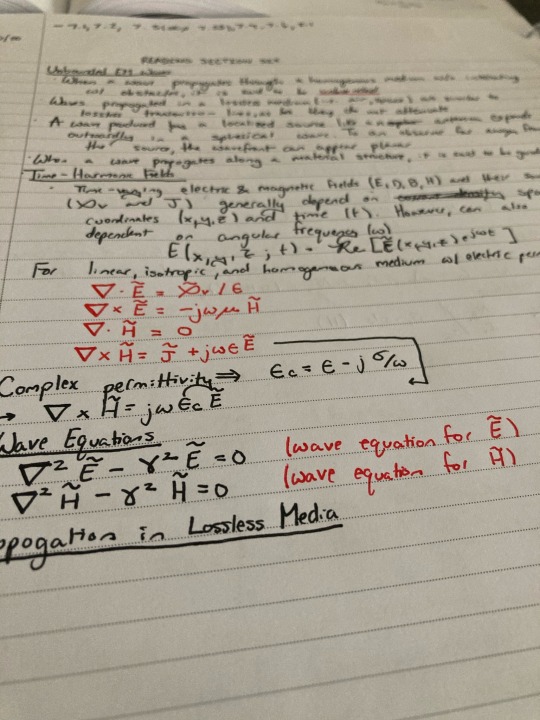 READING SECTION
Unbounded EM Waves
When a wave propagates through a homogeneous medium w/o interacting
w/ obstacles, it is said to be
Waves propagated in a lossless medium are similar to
lossless transmission lines, as they do not attenuate
A wave produced by a localized source, like antenna expands
outwardly in a spherical wave. To an observer far away from
the source, the wavefront can appear planar
When a wave propagates along a material structure, it is said to be
Time-Harmonic Fields
Time-varying electric & magnetic fields (E, D, B, H) and their
and J) generally depend on
coordinates (x,y,z) and time (t). However, can also
dependent on angular frequency (ω)
E(x,y,z;t) = Re[Ẽ(x,y,z)e^jωt]
For linear, isotropic, and homogeneous medium w/ electric
∇ · Ẽ = ρ̃v/ε
∇ × Ẽ = -jωμ H̃
∇ · H̃ = 0
∇ × H̃ = J̃ + jωε Ẽ
Complex permittivity ⇒ εc = ε - j σ/ω
→ ∇ × H̃ = jω εc Ẽ
Wave Equations
∇² Ẽ - γ² Ẽ = 0 (wave equation for Ẽ)
∇² H̃ - γ² H̃ = 0 (wave equation for H̃)
opogation in Lossless Media